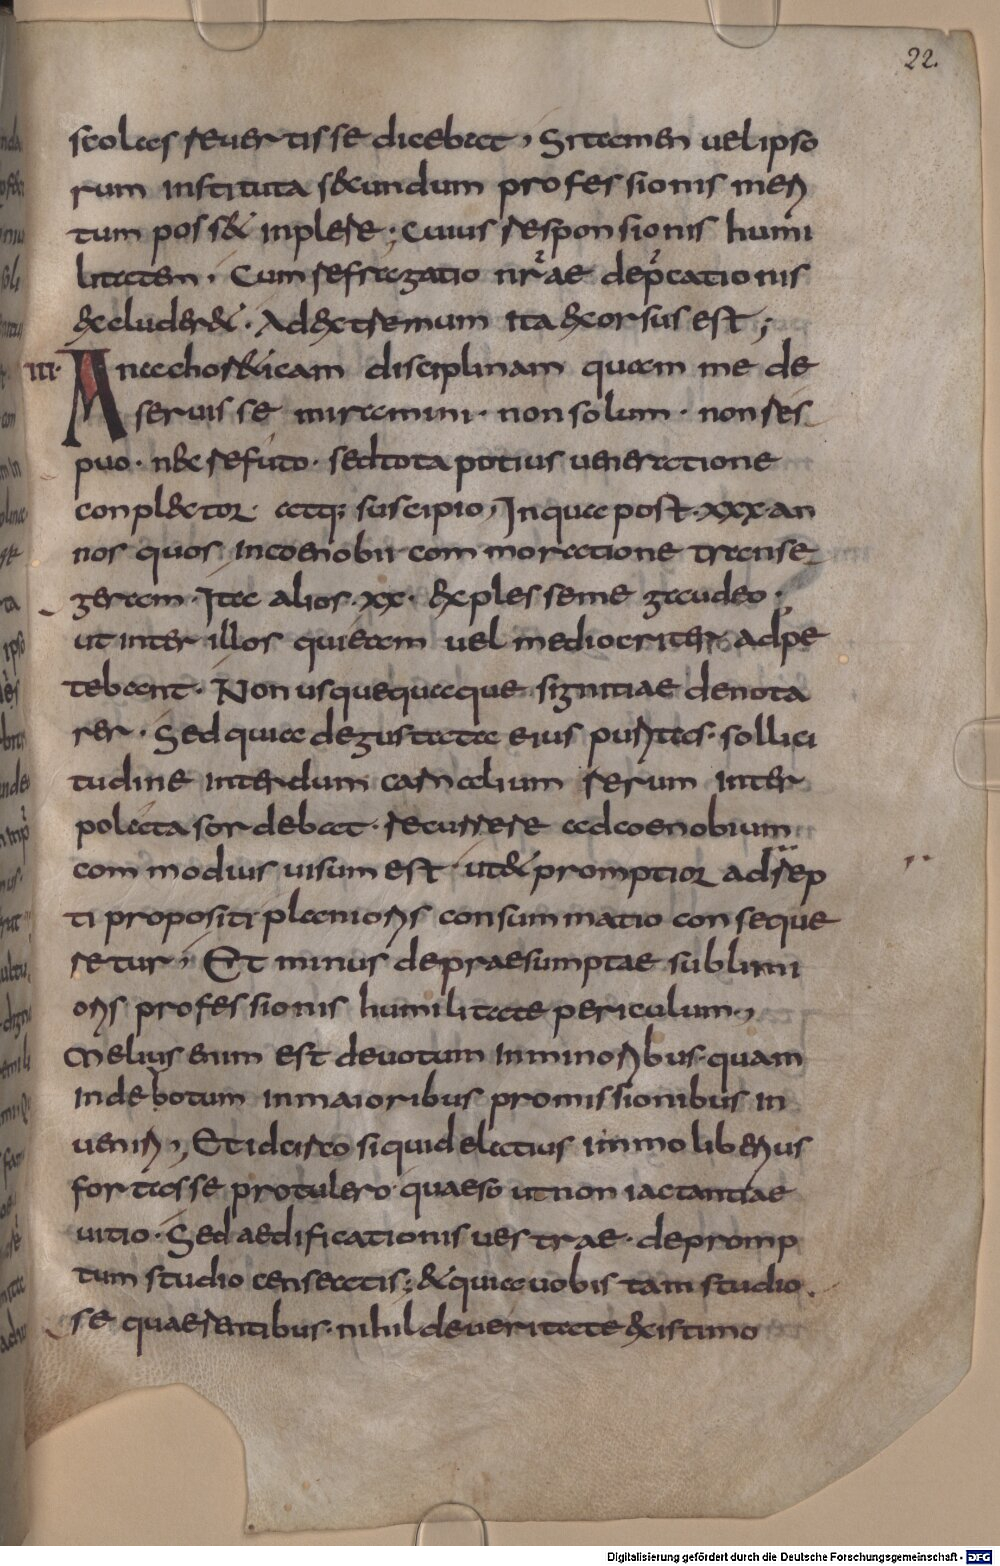 22.
scolas reuertisse dicebat, Si tamen uel ipso
rum instituta s&cundum professionis meri
tum poss& inplere; Cuius responsionis humi
litatem, Cum refragatio nrae deprcationis
&cluder&. Ad &tremum ita &corsus est;
III. Anachor&icam disciplinam quam me de
seruisse miramini. non solum. non res
puo. n&c refuto. sed tota potius ueneratione
conpl&ctor. atq; suscipio, In qua post. xxx. an
nos quos incoenobii commoratione transe
gerem. Ita alios. xx. &xplesseme gaudeo.
ut inter illos qui eam uel mediocriter adpe
tebant. Non usquequaque signitiae denota
rer. Sed quia degustata eius puritas. sollici
tudine interdum carnalium rerum inter
polata sordebat. recurrere ad coenobium
commodius uisum est. ut& promptior adrep
ti propositi planioris consummatio conseque
retur, Et minus depraesumptae sublimi
oris professionis humilitate periculum,
Melius enim est deuotum inminoribus. quam
indebotum inmaioribus promissionibus in
ueniri, Et idcirco siquid elatius immo liberius
fortasse protulero quaeso ut non iactantiae
uitio. Sed aedificationis uestrae. depromp
tum studio censeatis; & quia uobis tam studio
se quaerentibus. nihil deueritate &xistimo
Digitalisierung gefördert durch die Deutsche Forschungsgemeinschaft - DFG